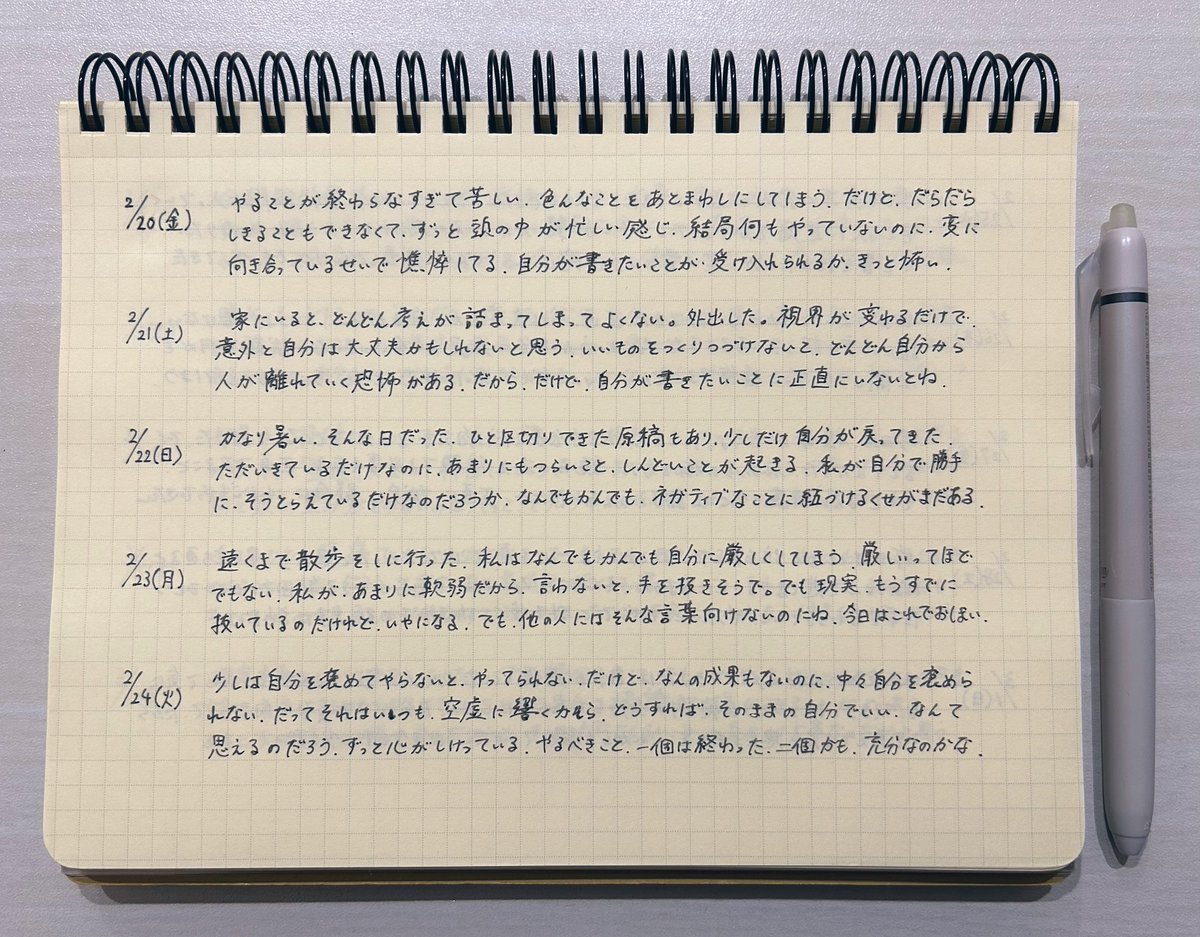 2/20(金) やることが終わらなすぎて苦しい. 色んなことをあとまわしにしてしまう. だけど. だらだら
しきることもできなくて. ずっと頭の中が忙しい感じ. 結局何もやっていないのに. 変に
向き合っているせいで憔悴してる. 自分が書きたいことが. 受け入れられるか. きっと怖い.
2/21(土) 家にいると. どんどん考えが詰まってしまってよくない。外出した。視界が変わるだけで.
意外と自分は大丈夫かもしれないと思う. いいものをつくりつづけないと. どんどん自分から
人が離れていく恐怖がある. だから. だけど. 自分が書きたいことに正直にいないとね.
2/22(日) かなり暑い. そんな日だった. ひと区切りできた原稿もあり. 少しだけ自分が戻ってきた.
ただいきているだけなのに. あまりにもつらいこと. しんどいことが起きる. 私が自分で勝手
に. そうとらえているだけなのだろうか. なんでもかんでも. ネガティブなことに紐づけるくせがまだある.
2/23(月) 遠くまで散歩をしに行った. 私はなんでもかんでも自分に厳しくしてしまう. 厳しいってほど
でもない. 私が. あまりに軟弱だから. 言わないと. 手を抜きそうで。でも現実. もうすでに
抜いているのだけれど. いやになる. でも. 他の人にはそんな言葉向けないのにね. 今日はこれでおしまい.
2/24(火) 少しは自分を褒めてやらないと. やってられない. だけど. なんの成果もないのに. 中々自分を褒められ
れない. だってそれはいつも. 空虚に響くから. どうすれば. そのままの自分でいい. なんて
思えるのだろう. ずっと心がしけっている. やるべきこと. 一個は終わった. 二個かも. 充分なのかな.